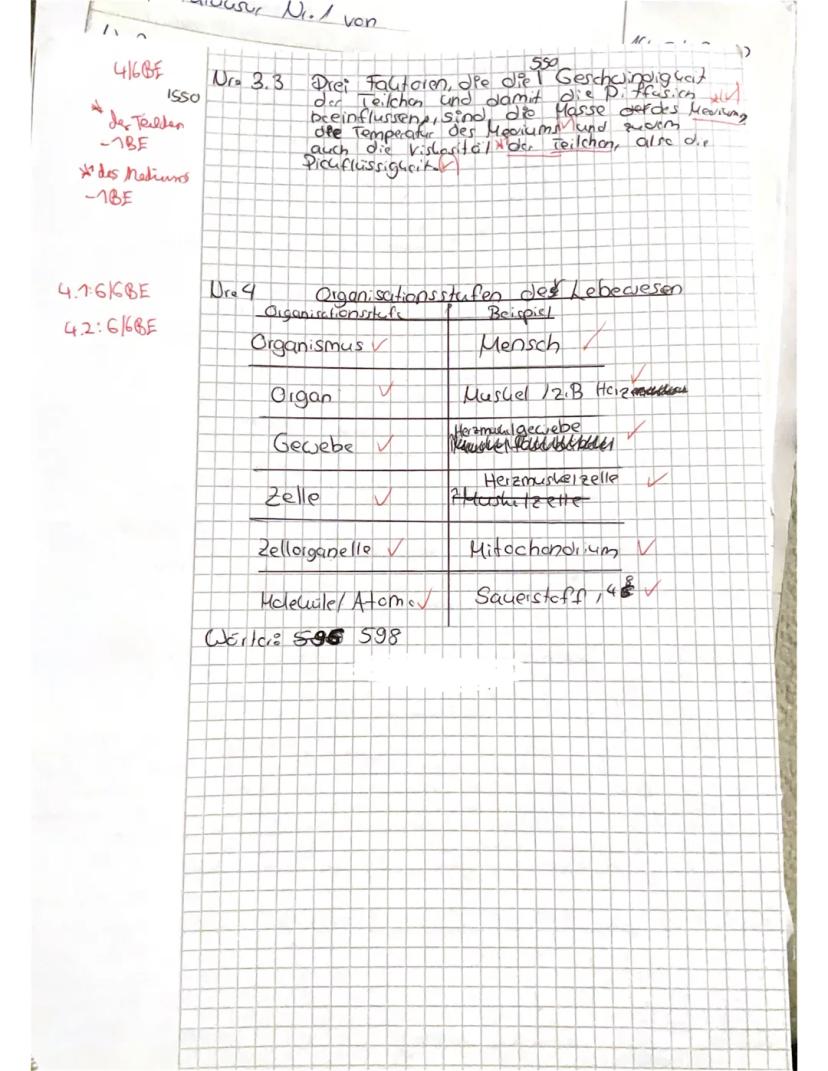 Klausur Nr. 1 von
4/6BE
1550
* der Teilchen
-1BE
* des Mediums
-1BE
550
Nr. 3.3 Drei Faktoren, die die Geschwindigkeit
der Teilchen und damit die Diffusion
beeinflussen, sind die Masse des Mediums,
die Temperatur des Mediums und zudem
auch die Viskosität * der Teilchen, also die
Dickflüssigkeit.
4.1: 6/6BE
4.2: 6/6BE
Nr. 4 Organisationsstufen des Lebewesen
Organisationsstufe Beispiel
Organismus Mensch
Organ Muskel / z.B Herz
Gewebe Herzmuskelgewebe
Zelle Herzmuskelzelle
Zellorganelle Mitochondrium
Moleküle/Atome Sauerstoff,
Wörter: 598